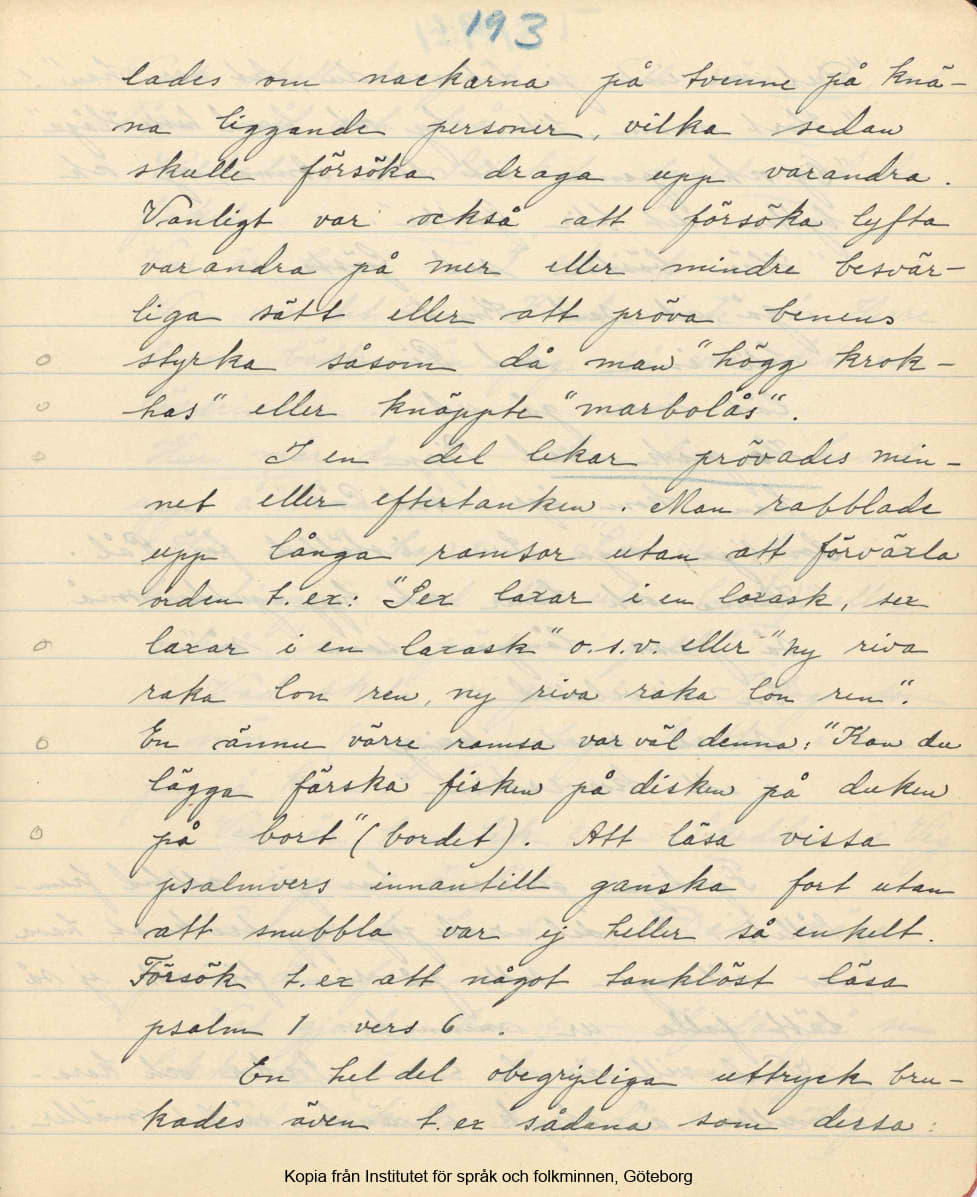 193
lades om nackarna på tvenne på knä-
na liggande personer, vilka sedan
skulle försöka draga upp varandra.
Vanligt var också att försöka lyfta
varandra på mer eller mindre besvär-
liga sätt eller att pröva benens
styrka såsom då man "högg krok-
has" eller knäppte "marbolås".
I en del lekar prövades min-
net eller eftertanken. Man rabblade
upp långa ramsor utan att förväxla
orden t.ex: "Sex laxar i en laxask, sex
laxar i en laxask" o.s.v. eller "ny riva
raka lon ren, ny riva raka lon ren".
En ännu värre ramsa var väl denna: "Kan du
lägga färska fisken på disken på duken
på bort" (bordet). Att läsa vissa
psalmvers innantill ganska fort utan
att snubbla var ej heller så enkelt.
Försök t.ex att något tanklöst läsa
psalm 1 vers 6.
En hel del obegripliga uttryck bru-
kades även t.ex sådana som dessa:
Kopia från Institutet för språk och folkminnen, Göteborg